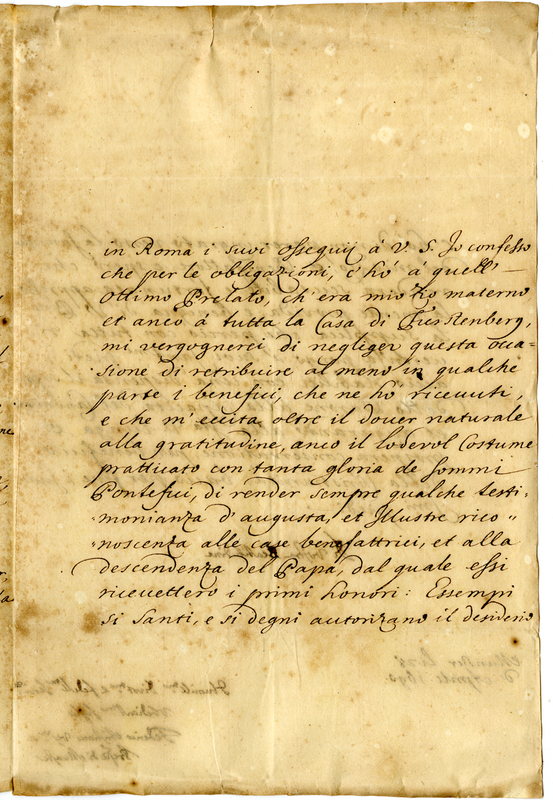 in Roma i suoi ossequij à V. S. Jo confesso
che per le obligazioni, c'hò à quell'
ottimo Prelato, ch'era mio zio materno
et anco à tutta la Casa di Furstenberg,
mi vergognerei di negliger questa occa=
sione di retribuire al meno in qualche
parte i benefici, che ne hò ricevuti,
e che m'eccita oltre il dover naturale
alla gratitudine, anco il lodevol Costume
pratticato con tanta gloria de sommi
Pontefici, di render sempre qualche testi=
monianza d'augusta, et Illustre rico=
noscenza alle case benefattrici, et alla
descendenza del Papa, dal quale essi
ricevettero i primi honori: Essempi
si santi, e si degni autorizano il desiderio